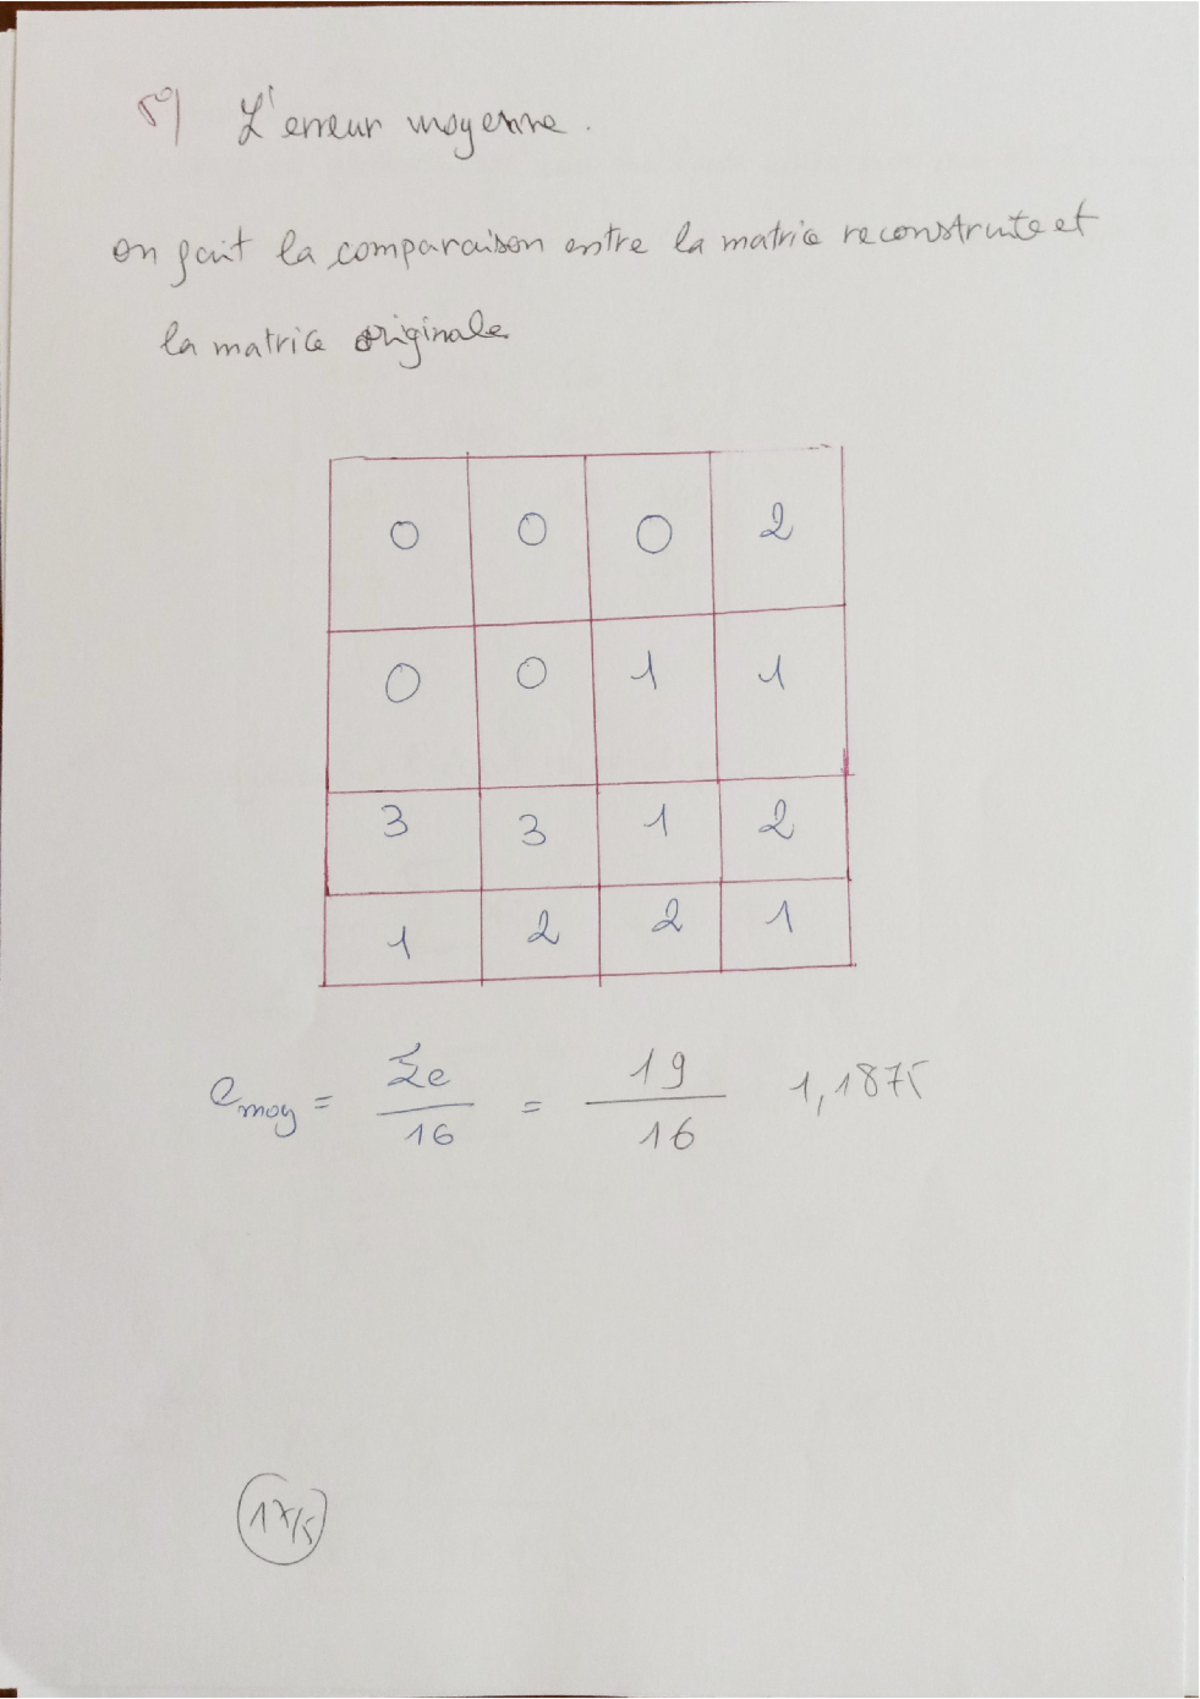 5°/ L'erreur moyenne.
on fait la comparaison entre la matrice reconstruite et
la matrice originale
0 0 0 2
0 0 1 1
3 3 1 2
1 2 2 1
e moy = Σe / 16 = 19 / 16 1,1875
17/5